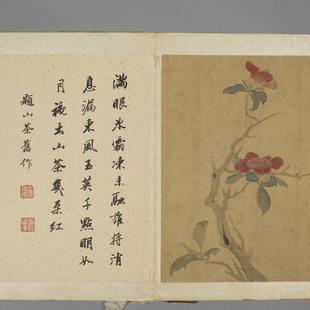 滿眼氷霜凍未融誰將消
息漏東風玉英千點明如
月襯出山茶幾朵紅
題山茶舊作